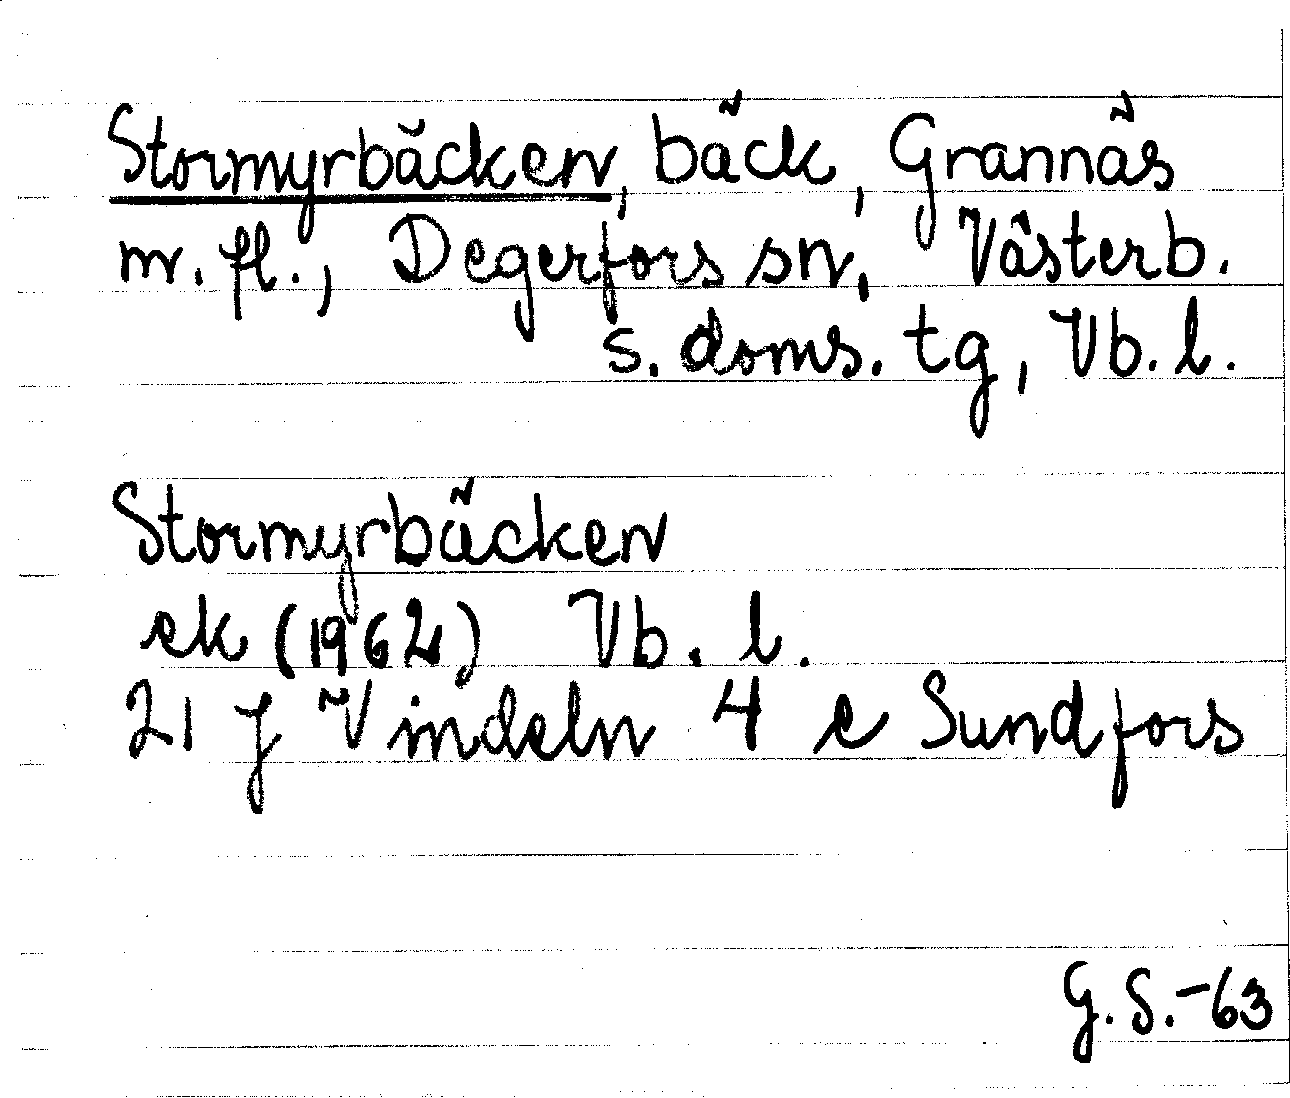 Stormyrbäcken, bäck, Grannäs
m. fl., Degerfors sn, Västerb.
s. doms. tg, Vb. l.
Stormyrbäcken
ek (1962) Vb. l.
21 J Vindeln 4 e Sundfors
G. S. -63